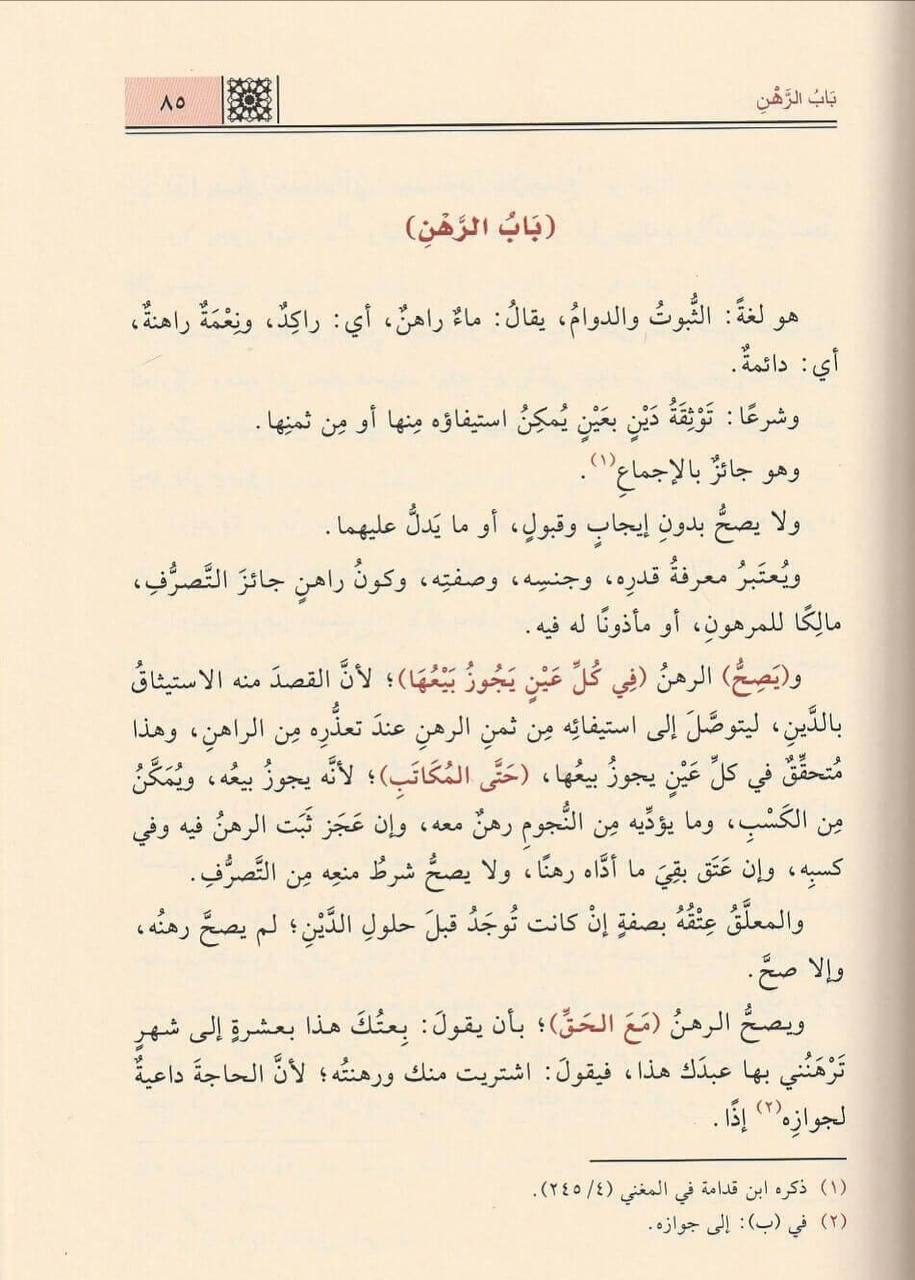 بَابُ الرَّهْنِ
٨٥
(بَابُ الرَّهْنِ)
هو لغةً: الثُّبوتُ والدوامُ، يقالُ: ماءٌ راهنٌ، أي: راكِدٌ، ونِعْمَةٌ راهنةٌ،
أي: دائمةٌ.
وشرعًا: تَوْثِقَةُ دَيْنٍ بعَيْنٍ يُمكِنُ استيفاؤه مِنها أو مِن ثمنِها.
وهو جائزٌ بالإجماعِ(١).
ولا يصحُّ بدونِ إيجابٍ وقبولٍ، أو ما يَدلُّ عليهما.
ويُعتَبرُ معرفةُ قدرِه، وجنسِه، وصفتِه، وكونُ راهنٍ جائزَ التَّصرُّفِ،
مالِكًا للمرهونِ، أو مأذونًا له فيه.
و(يَصِحُّ) الرهنُ (فِي كُلِّ عَيْنٍ يَجُوزُ بَيْعُهَا)؛ لأنَّ القصدَ منه الاستيثاقُ
بالدَّينِ، ليتوصَّلَ إلى استيفائِه مِن ثمنِ الرهنِ عندَ تعذُّرِه مِن الراهنِ، وهذا
مُتحقِّقٌ في كلِّ عَيْنٍ يجوزُ بيعُها، (حَتَّى المُكَاتَبِ)؛ لأنَّه يجوزُ بيعُه، ويُمَكَّنُ
مِن الكَسْبِ، وما يؤدِّيه مِن النُّجومِ رهنٌ معه، وإن عَجَز ثَبَت الرهنُ فيه وفي
كسبِه، وإن عَتَق بقِيَ ما أدَّاه رهنًا، ولا يصحُّ شرطُ منعِه مِن التَّصرُّفِ.
والمعلَّقُ عِتْقُهُ بصفةٍ إنْ كانت تُوجَدُ قبلَ حلولِ الدَّيْنِ؛ لم يصحَّ رهنُه،
وإلا صحَّ.
ويصحُّ الرهنُ (مَعَ الحَقِّ)؛ بأن يقولَ: بِعتُكَ هذا بعشرةٍ إلى شهرٍ
تَرْهَنُني بها عبدَك هذا، فيقولَ: اشتريت منك ورهنتُه؛ لأنَّ الحاجةَ داعيةٌ
لجوازِه(٢) إذًا.
(١) ذكره ابن قدامة في المغني (٤/ ٢٤٥).
(٢) في (ب): إلى جوازه.